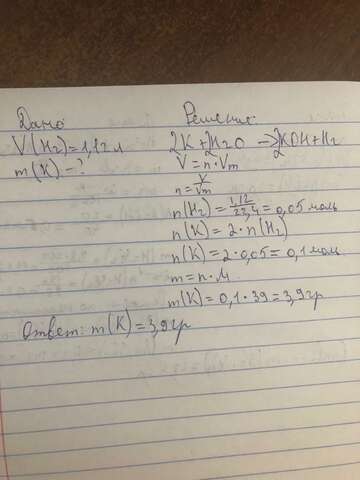 Дано
V(H₂)=1,12л
m(K)-?
Решение
2K+2H₂O→2KOH+H₂
V=n·Vm
n=V/Vm
n(H₂)=1,12/22,4=0,05 моль
n(K)=2·n(H₂)
n(K)=2·0,05=0,1 моль
m=n·M
m(K)=0,1·39=3,9гр
Ответ: m(K)=3,9гр